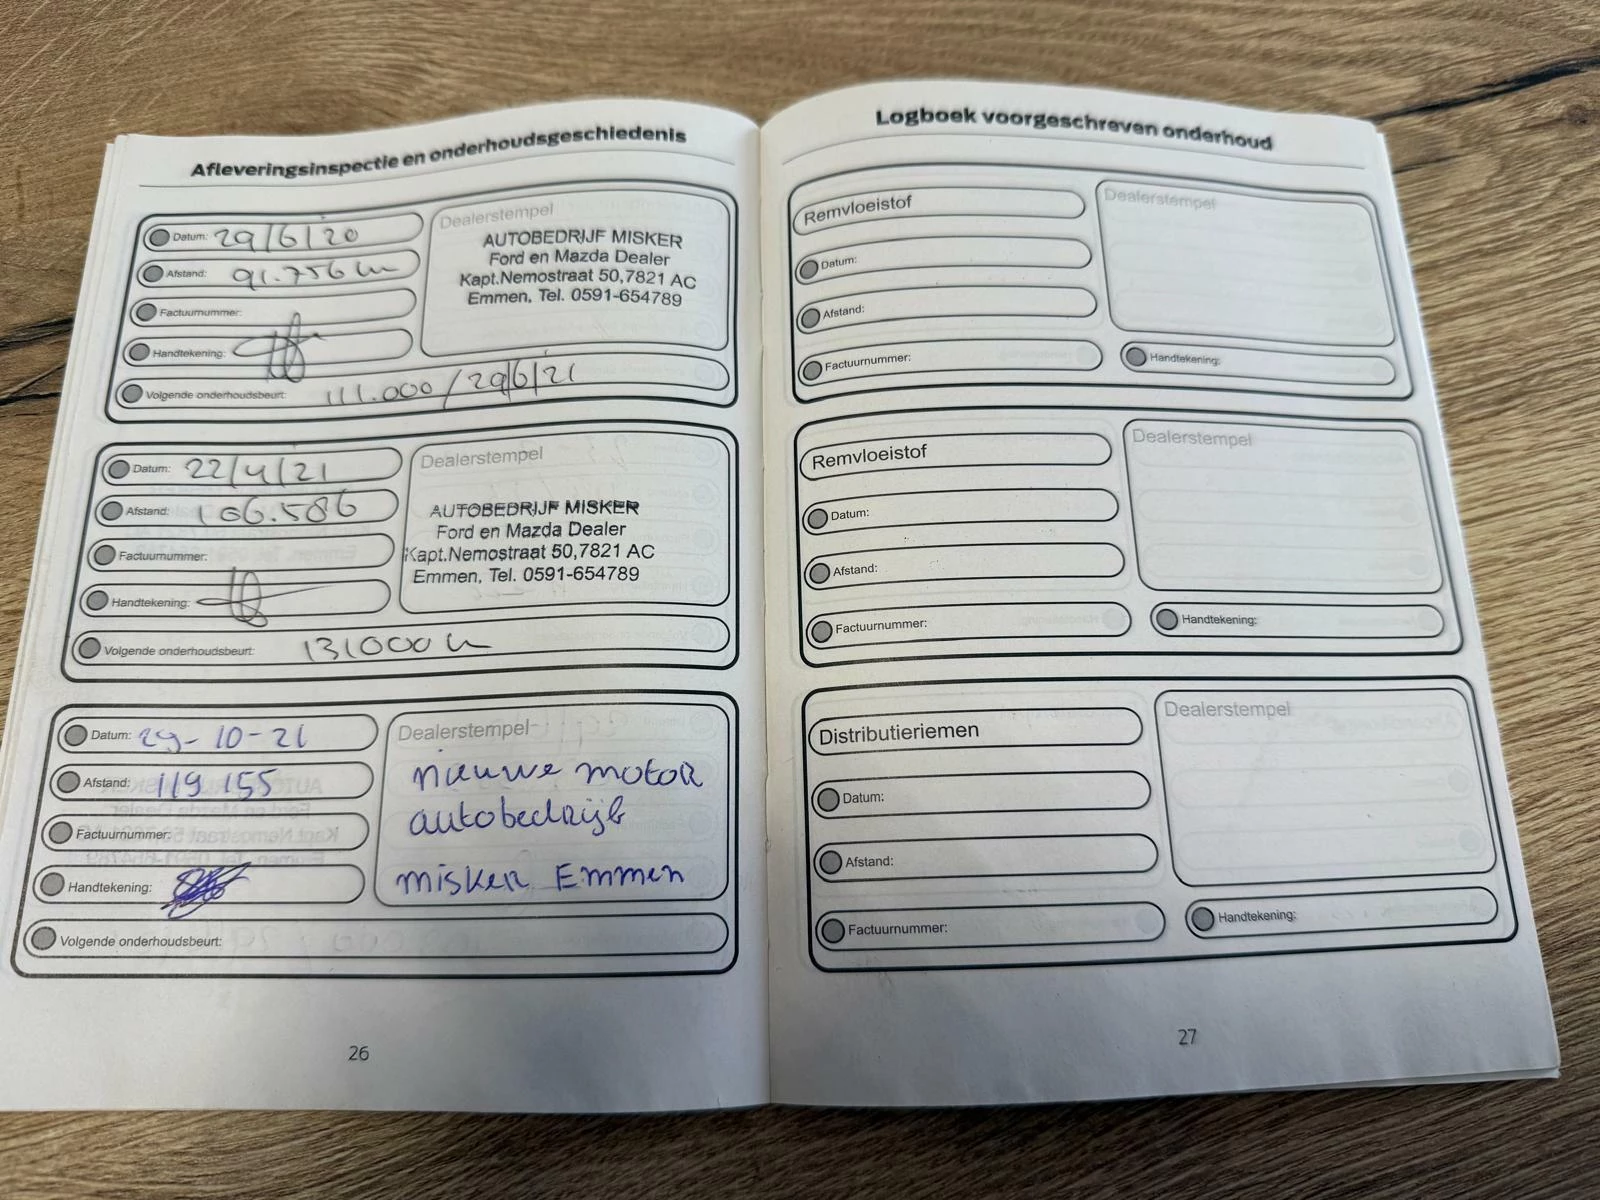 Afleveringsinspectie en onderhoudsgeschiedenis
Datum: 29/6/20
Afstand: 91.756 km
Factuurnummer:
Handtekening:
Volgende onderhoudsbeurt: 111.000 / 29/6/21
Dealerstempel
AUTOBEDRIJF MISKER
Ford en Mazda Dealer
Kapt.Nemostraat 50,7821 AC
Emmen, Tel. 0591-654789
Datum: 22/4/21
Afstand: 106.586
Factuurnummer:
Handtekening:
Volgende onderhoudsbeurt: 131000 km
Dealerstempel
AUTOBEDRIJF MISKER
Ford en Mazda Dealer
Kapt.Nemostraat 50,7821 AC
Emmen, Tel. 0591-654789
Datum: 29-10-21
Afstand: 119 155
Factuurnummer:
Handtekening:
Volgende onderhoudsbeurt:
Dealerstempel
nieuwe motor
autobedrijf
misker Emmen
26
Logboek voorgeschreven onderhoud
Remvloeistof
Datum:
Afstand:
Factuurnummer:
Dealerstempel
Handtekening:
Remvloeistof
Datum:
Afstand:
Factuurnummer:
Dealerstempel
Handtekening:
Distributieriemen
Datum:
Afstand:
Factuurnummer:
Dealerstempel
Handtekening:
27